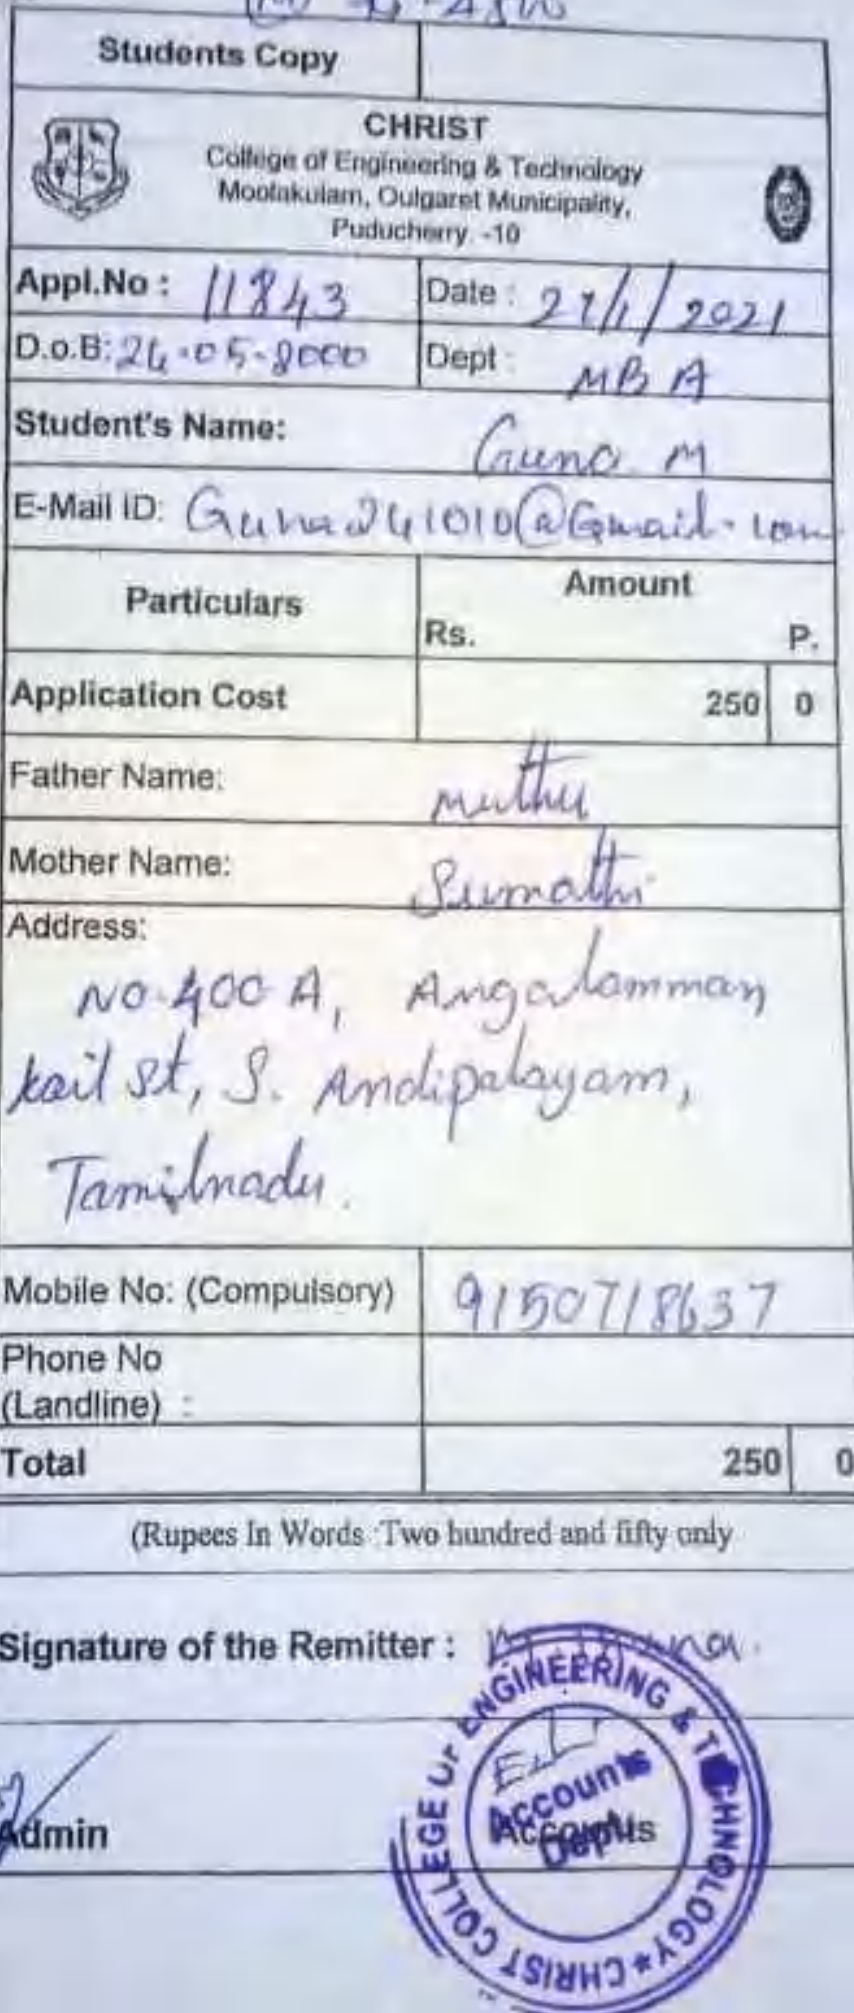 Students Copy
CHRIST
College of Engineering & Technology
Moolakulam, Oulgaret Municipality,
Puducherry. -10
Appl.No : 11843 Date : 27/1/2021
D.o.B: 24-05-2000 Dept : MBA
Student's Name: Guna M
E-Mail ID: Guna241010@Gmail.com
Particulars Amount
Rs. P.
Application Cost 250 0
Father Name: Muthu
Mother Name: Sumathi
Address:
NO.400 A, Angalamman
koil st, S. Andipalayam,
Tamilnadu.
Mobile No: (Compulsory) 9150718637
Phone No
(Landline) :
Total 250 0
(Rupees In Words :Two hundred and fifty only
Signature of the Remitter : M. Guna.
Admin Accounts
CHRIST COLLEGE OF ENGINEERING & TECHNOLOGY *
Accounts
Dept.